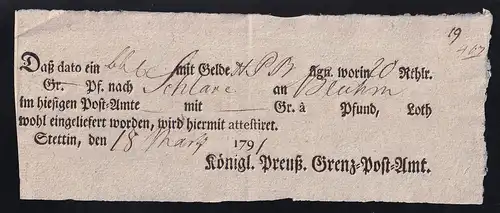 19
Daß dato ein mit Gelde sign. worin 20 Rthlr.
Gr. — Pf. nach Schlawe an Bluhm
im hiesigen Post-Amte — mit — Gr. à Pfund, Loth
wohl eingeliefert worden, wird hiermit attestiret.
Stettin, den 18 Martz 1791
Königl. Preuß. Grenz-Post-Amt.